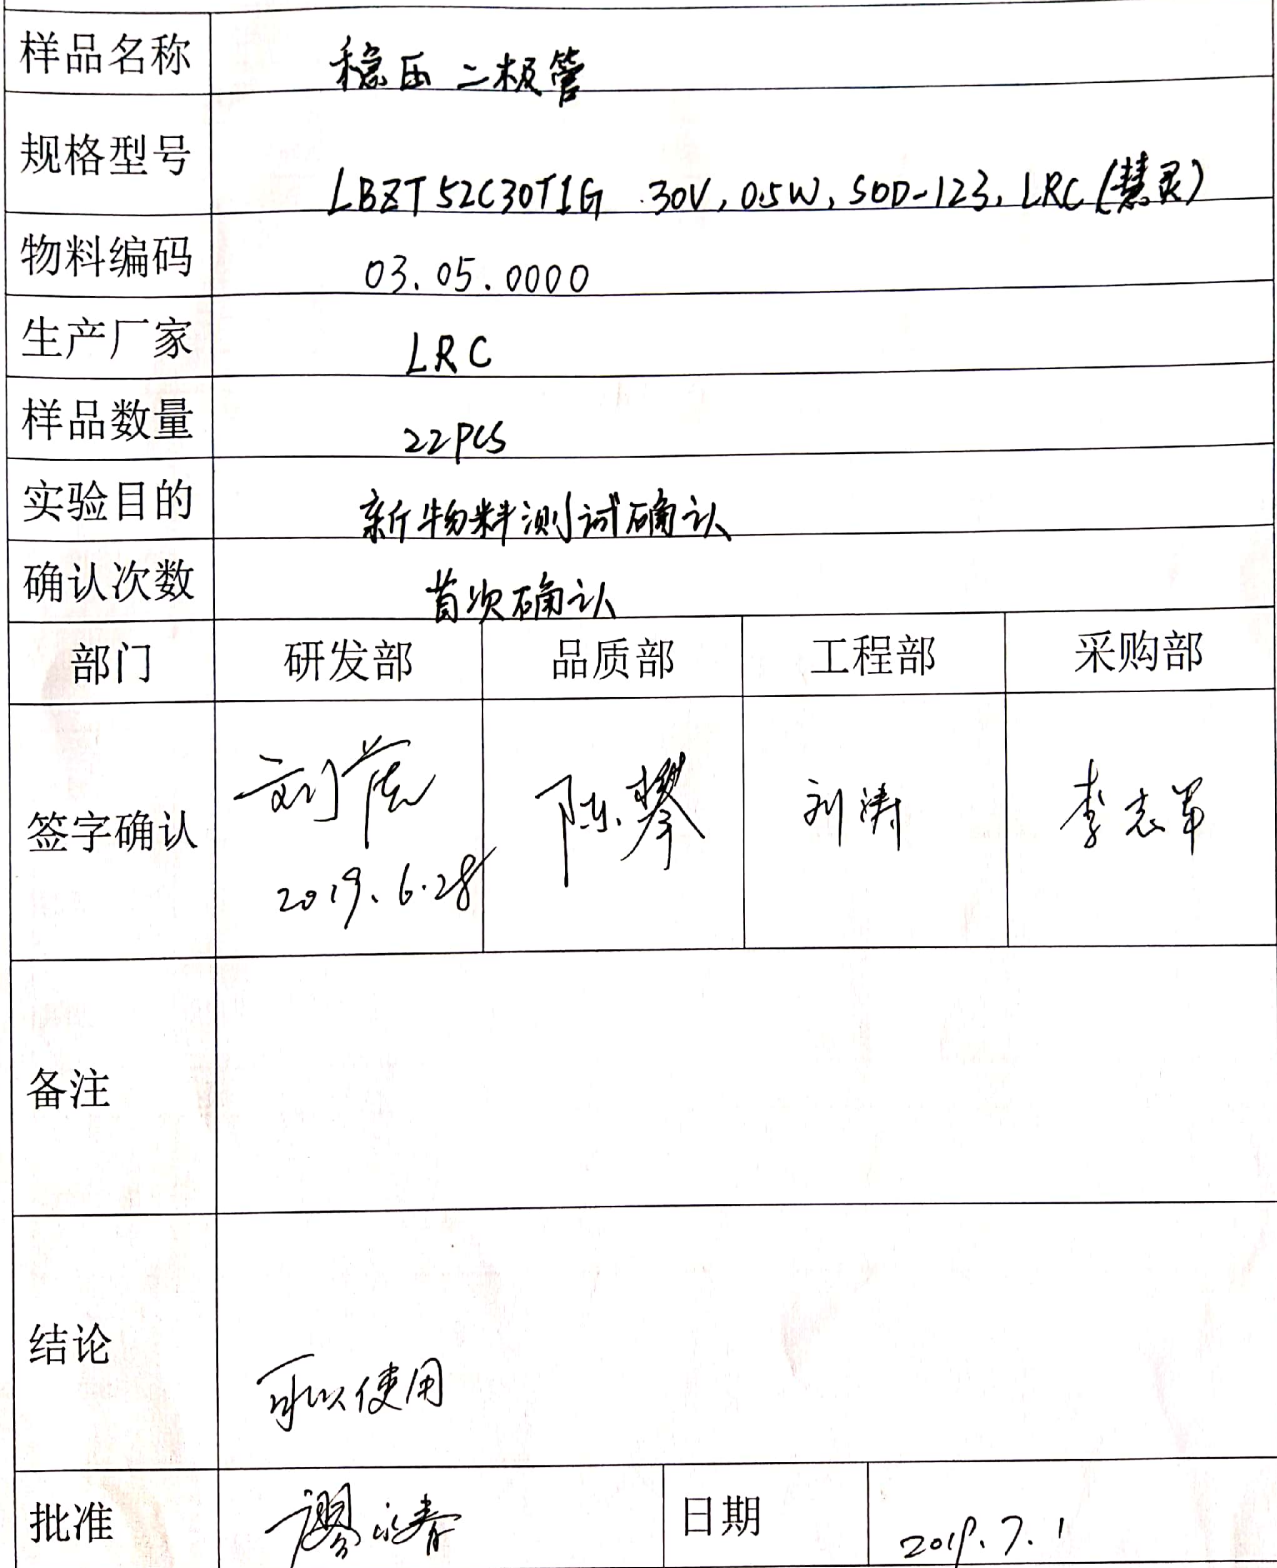 样品名称 稳压二极管
规格型号 LBZT52C30T1G 30V, 0.5W, SOD-123, LRC(慧灵)
物料编码 03.05.0000
生产厂家 LRC
样品数量 22PCS
实验目的 新物料测试确认
确认次数 首次确认
部门 研发部 品质部 工程部 采购部
签字确认 刘 陈攀 刘涛 李志军
2019.6.28
备注
结论 可以使用
批准 廖永春 日期 2019.7.1